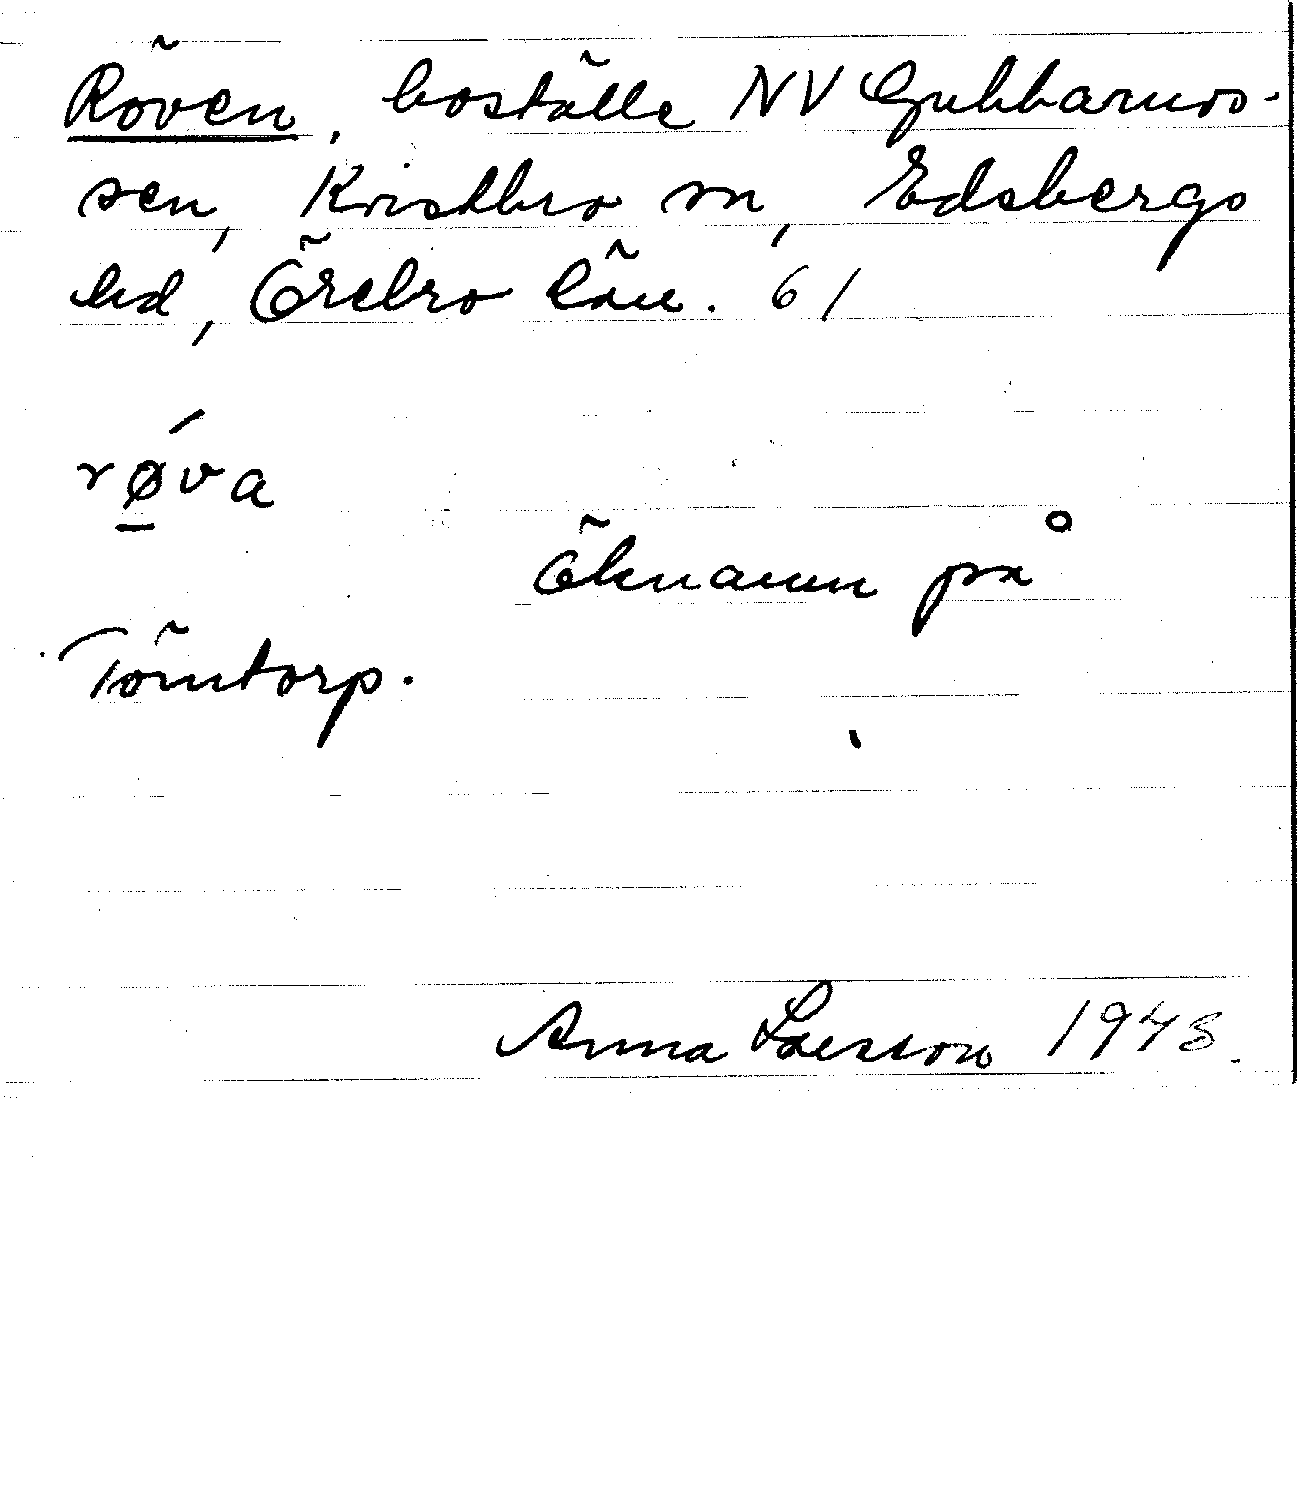 Röven, boställe NV Gubbamos-
sen, Kvistbro sn, Edsbergs
hd, Örebro län. 61
røva
Öknamn på
Törntorp.
Anna Larsson 1948.